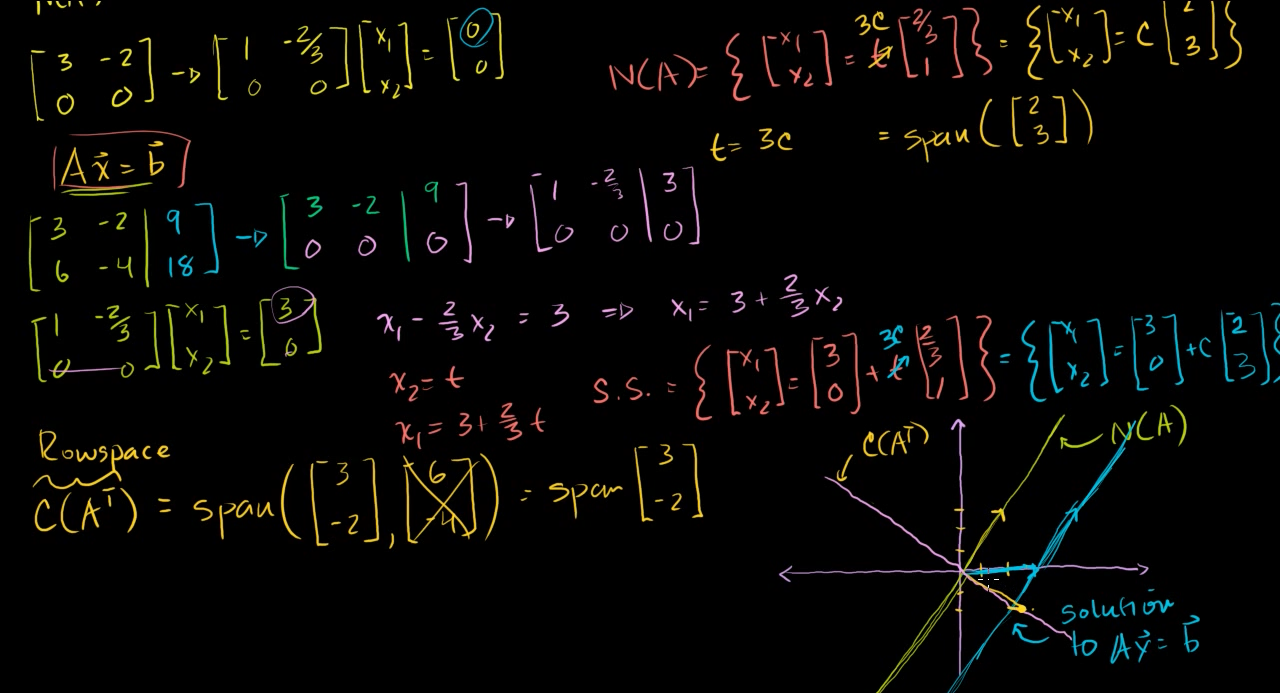 N(A)
[3 -2; 0 0] → [1 -2/3; 0 0] [x₁; x₂] = [0; 0]
N(A) = { [x₁; x₂] = 3c t [2/3; 1] } = { [x₁; x₂] = c [2; 3] }
t = 3c = span([2; 3])
Ax⃗ = b⃗
[3 -2 | 9; 6 -4 | 18] → [3 -2 | 9; 0 0 | 0] → [1 -2/3 | 3; 0 0 | 0]
[1 -2/3; 0 0] [x₁; x₂] = [3; 0]
x₁ - 2/3 x₂ = 3 ⇒ x₁ = 3 + 2/3 x₂
x₂ = t
x₁ = 3 + 2/3 t
S.S. = { [x₁; x₂] = [3; 0] + 3c t [2/3; 1] } = { [x₁; x₂] = [3; 0] + c [2; 3] }
Rowspace
C(Aᵀ) = span([3; -2], [6; -4]) = span [3; -2]
C(Aᵀ)
N(A)
solution
to Ax⃗ = b⃗